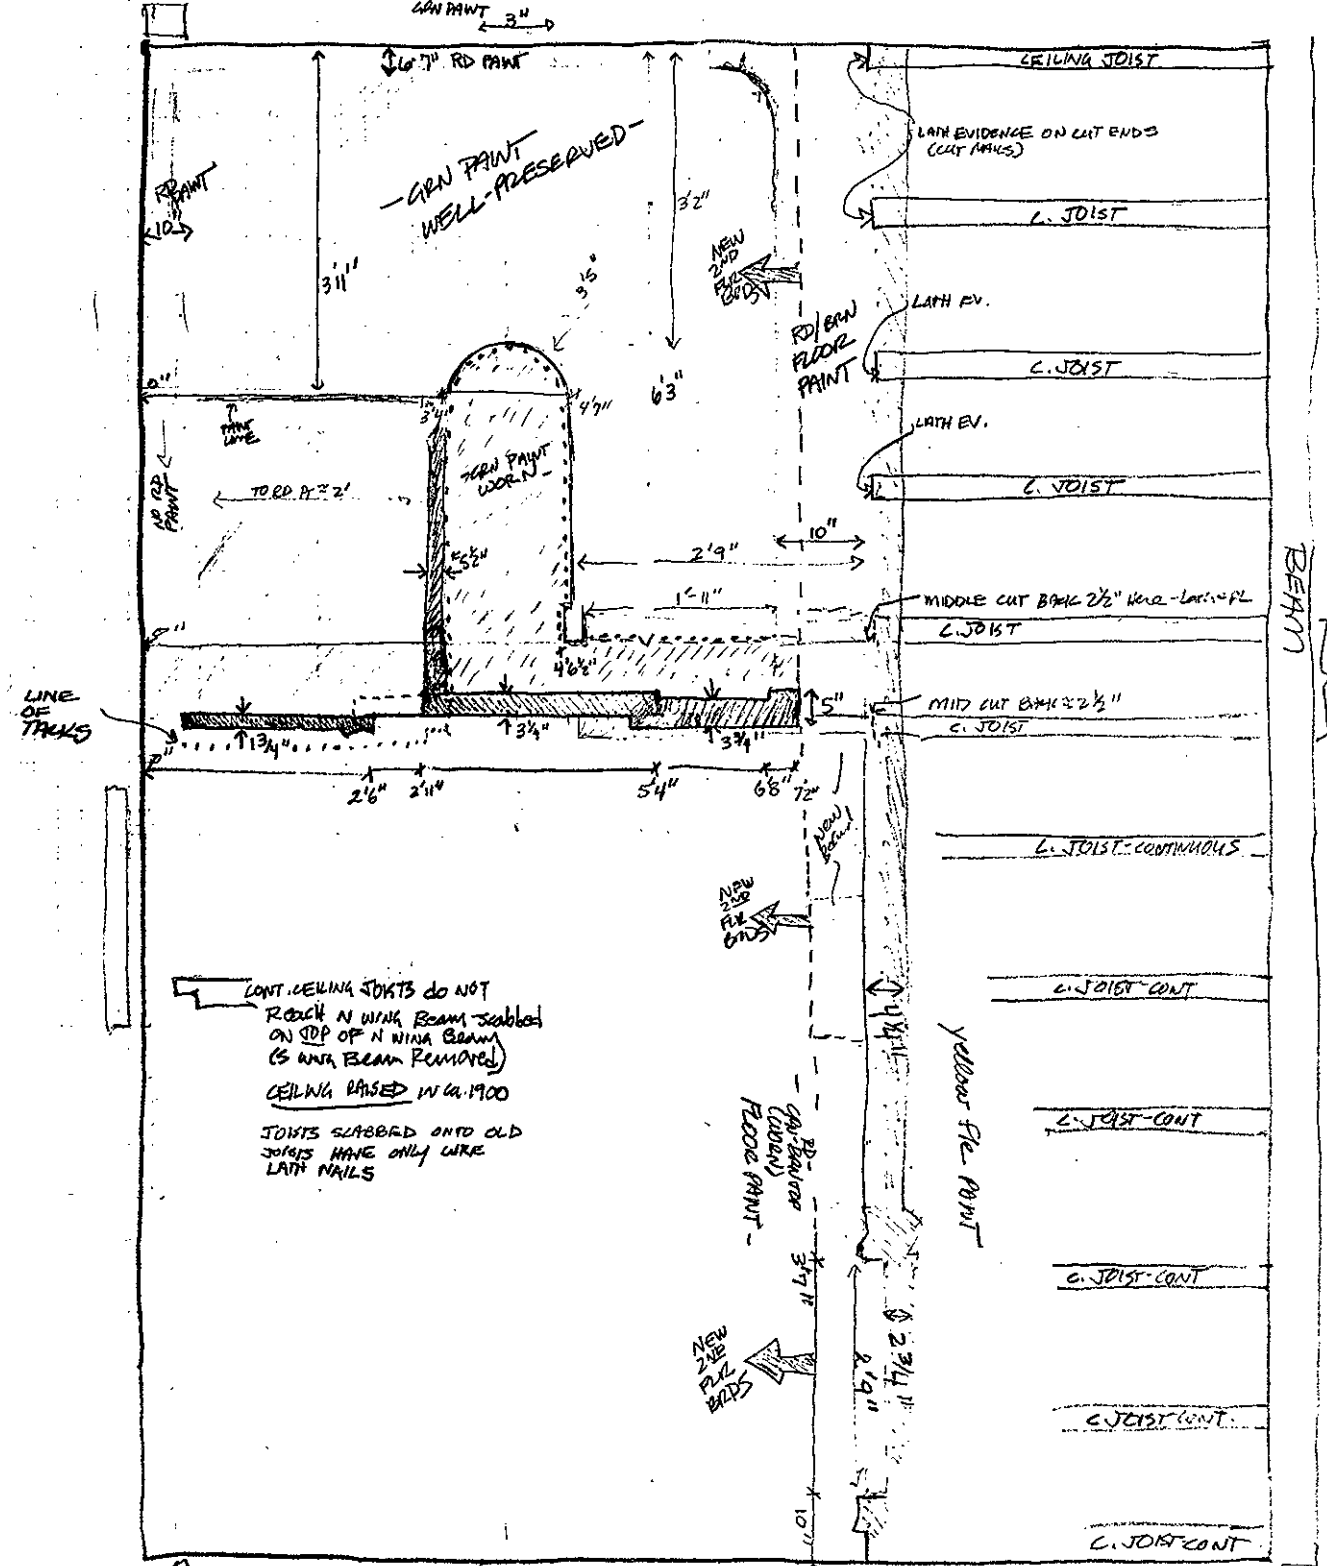 GRN PAINT
3"
6-7" RD PAINT
CEILING JOIST
LATH EVIDENCE ON CUT ENDS
(CUT NAILS)
- GRN PAINT
WELL-PRESERVED -
RD
PAINT
10"
3'2"
C. JOIST
3'11"
NEW
2ND
FLR
BRDS
3'5"
LATH EV.
RD/BRN
FLOOR
PAINT
C. JOIST
0"
3'4"
4'7"
6'3"
PAINT
LINE
LATH EV.
- GRN PAINT
WORN -
NO RD
PAINT
TO RD PT ≈ 2'
C. JOIST
10"
2'9"
≈5½"
BEAM
1'-11"
MIDDLE CUT BACK 2½" HERE
C. JOIST
4'6½"
LINE
OF
TACKS
5"
MID CUT BACK ≈ 2½"
C. JOIST
1¾"
3¼"
3¾"
0"
2'6"
2'11"
5'4"
6'8"
7'2"
NEW
C. JOIST-CONTINUOUS
NEW
2ND
FLR
BRDS
CONT. CEILING JOISTS do NOT
REACH N WING Beam-scabbed
ON TOP OF N WING Beam
(S WING Beam Removed)
CEILING RAISED IN CA. 1900
JOISTS SCABBED ONTO OLD
JOISTS HAVE ONLY WIRE
LATH NAILS
C. JOIST-CONT
yellow flr PAINT
C. JOIST-CONT
RD-
(WORN)
FLOOR PAINT -
3'7"
C. JOIST-CONT
2¾"
2'9"
NEW
2ND
FLR
BRDS
C. JOIST CONT.
10"
C. JOIST-CONT